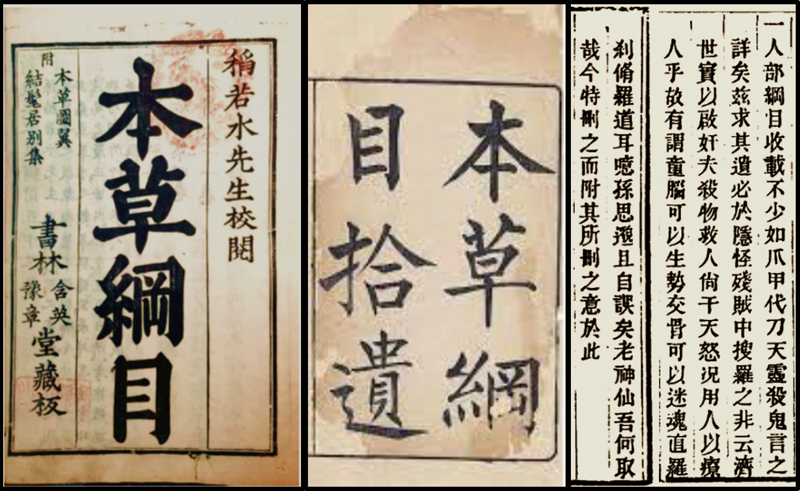 稱若水先生校閱
本草綱目
附
本草圖翼
結髦居別集
書林
含英
豫章
堂藏板
本草綱
目拾遺
一人部綱目收載不少如爪甲代刀天靈殺鬼言之
詳矣茲求其遺必於隱怪殘賊中搜羅之非云濟
世實以啟奸夫殺物救人尙干天怒況用人以療
人乎故有謂童腦可以生勢交骨可以迷魂直羅
剎脩羅道耳噫孫思邈且自誤矣老神仙吾何取
哉今特刪之而附其所刪之意於此